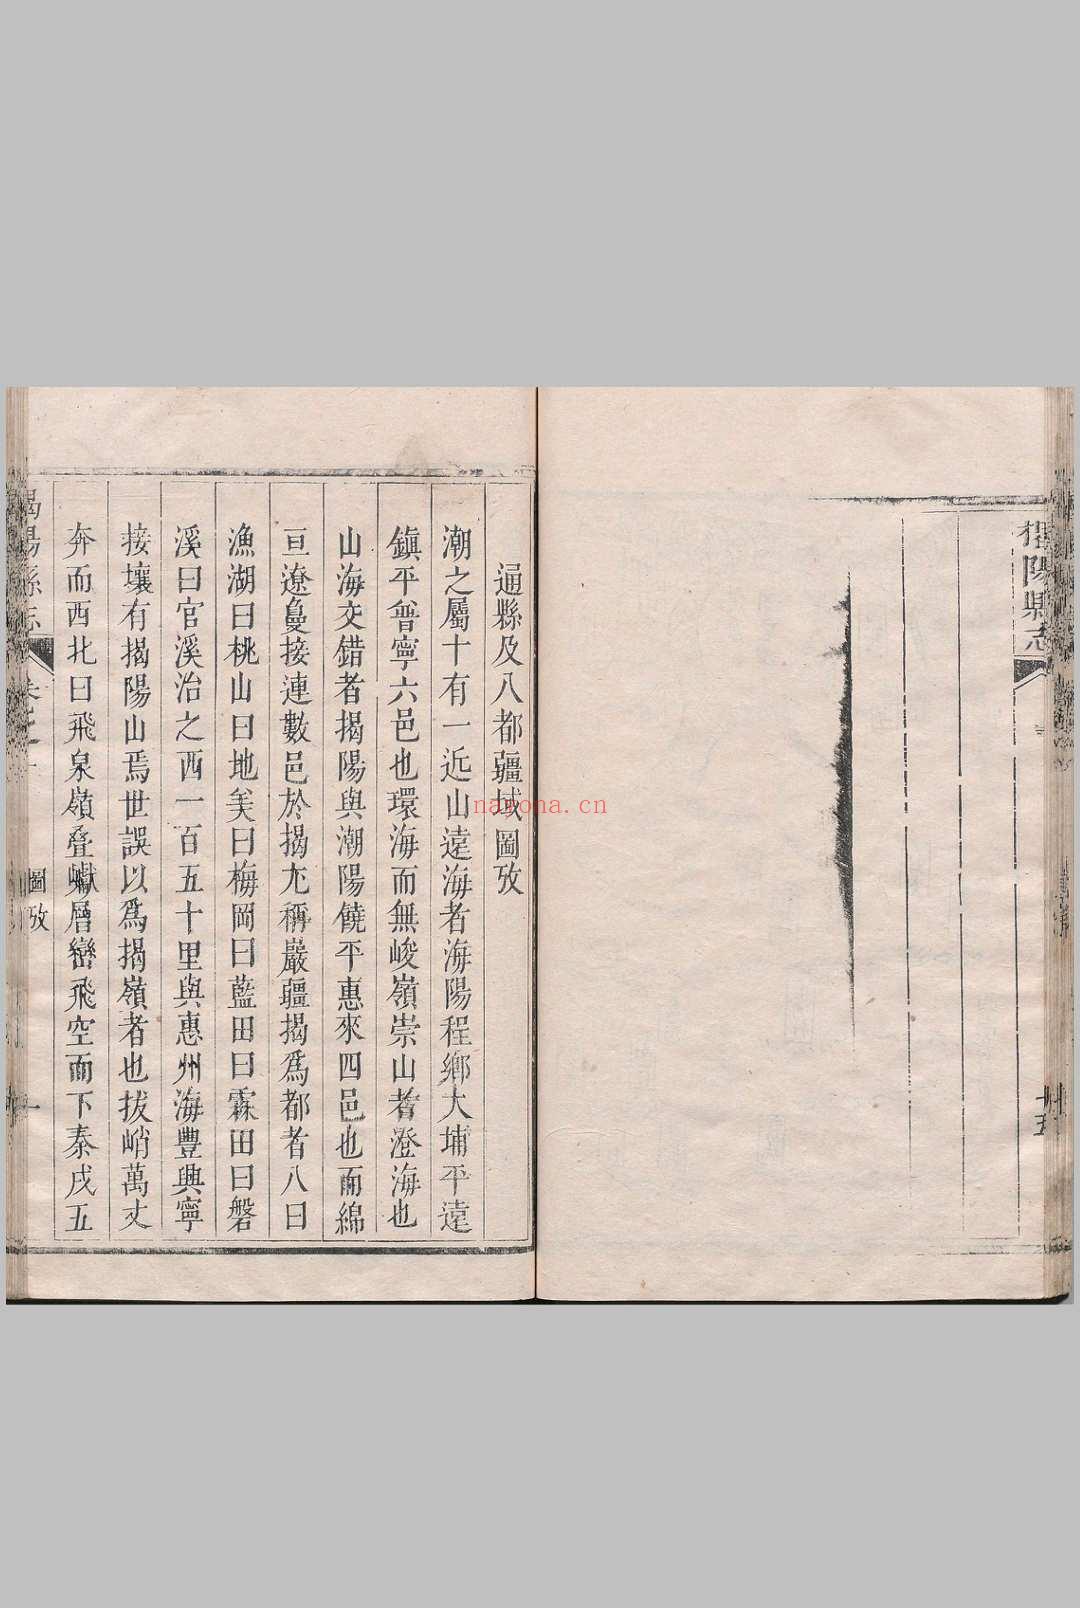 揭陽縣志
十五
通縣及八都疆域圖攷
潮之屬十有一近山遠海者海陽程鄉大埔平遠
鎮平普寧六邑也環海而無峻嶺崇山者澄海也
山海交錯者揭陽與潮陽饒平惠來四邑也而綿
亘遼敻接連數邑於揭尤稱嚴疆揭爲都者八曰
漁湖曰桃山曰地美曰梅岡曰藍田曰霖田曰磐
溪曰官溪治之西一百五十里與惠州海豐興寧
接壤有揭陽山焉世誤以爲揭嶺者也拔峭萬丈
奔而西北曰飛泉嶺叠巘層巒飛空而下秦戍五
揭陽縣志
圖攷
一
nayona.cn